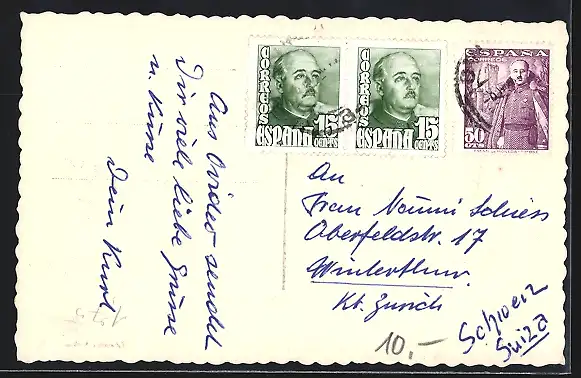 Aus Oviedo sendet
Dir viele liebe Grüsse
u. Küsse
Dein Kurt
CORREOS
15
CENTS
ESPAÑA
CORREOS
15
CENTS
ESPAÑA
ESPAÑA
CORREOS
50
CTS
An
Frau Noumi Schiess
Oberfeldstr. 17
Winterthur.
Kt. Zürich
Schweiz
Suiza
10,-